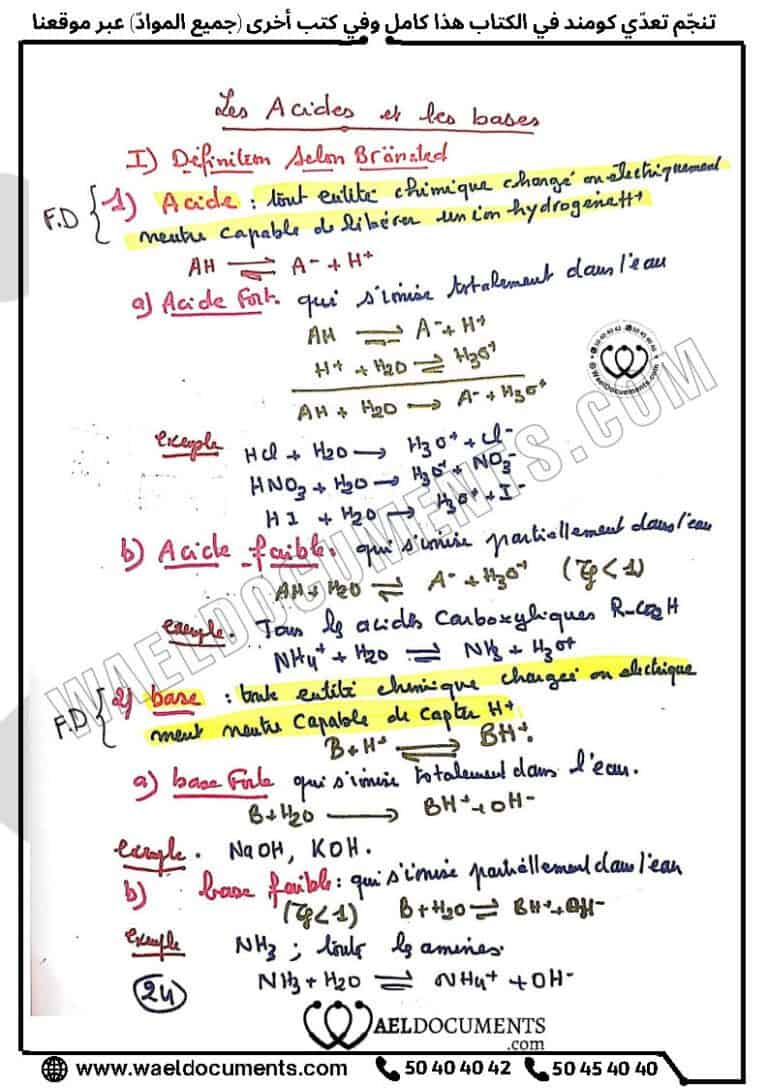 تنجّم تعدّي كومند في الكتاب هذا كامل وفي كتب أخرى (جميع الموادّ) عبر موقعنا
Les Acides et les bases
I) Définition selon Brönsted
F.D { 1) Acide : tout entité chimique chargé ou électriquement
neutre capable de libérer un ion hydrogène H+
AH ⇌ A- + H+
a) Acide Fort. qui s'ionise totalement dans l'eau
AH ⇌ A- + H+
H+ + H2O ⇌ H3O+
AH + H2O → A- + H3O+
Exemple HCl + H2O → H3O+ + Cl-
HNO3 + H2O → H3O+ + NO3-
HI + H2O → H3O+ + I-
b) Acide faible. qui s'ionise partiellement dans l'eau
AH + H2O ⇌ A- + H3O+ (τf < 1)
Exemple. Tous les acides Carboxyliques R-CO2H
NH4+ + H2O ⇌ NH3 + H3O+
F.D { 2) base : toute entité chimique chargée ou electrique
ment neutre capable de capter H+
B + H+ ⇌ BH+.
a) base Forte qui s'ionise totalement dans l'eau.
B + H2O → BH+ + OH-
Exemple. NaOH, KOH.
b) base faible : qui s'ionise partiellement dans l'eau
(τf < 1) B + H2O ⇌ BH+ + OH-
Exemple NH3 ; toutes les amines.
NH3 + H2O ⇌ NH4+ + OH-
24
WAELDOCUMENTS.COM
WAELDOCUMENTS
.com
www.waeldocuments.com 50 40 40 42 50 45 40 40